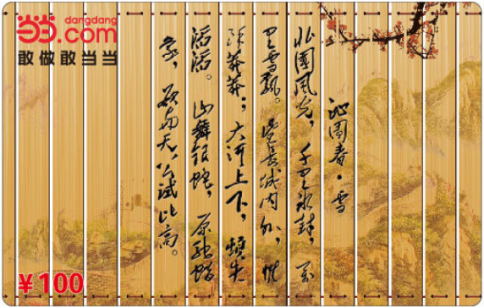 当当.com
dangdang
敢做敢当当
沁园春·雪
北国风光，千里冰封，万
里雪飘。望长城内外，惟
余莽莽；大河上下，顿失
滔滔。山舞银蛇，原驰蜡
象，欲与天公试比高。
￥100